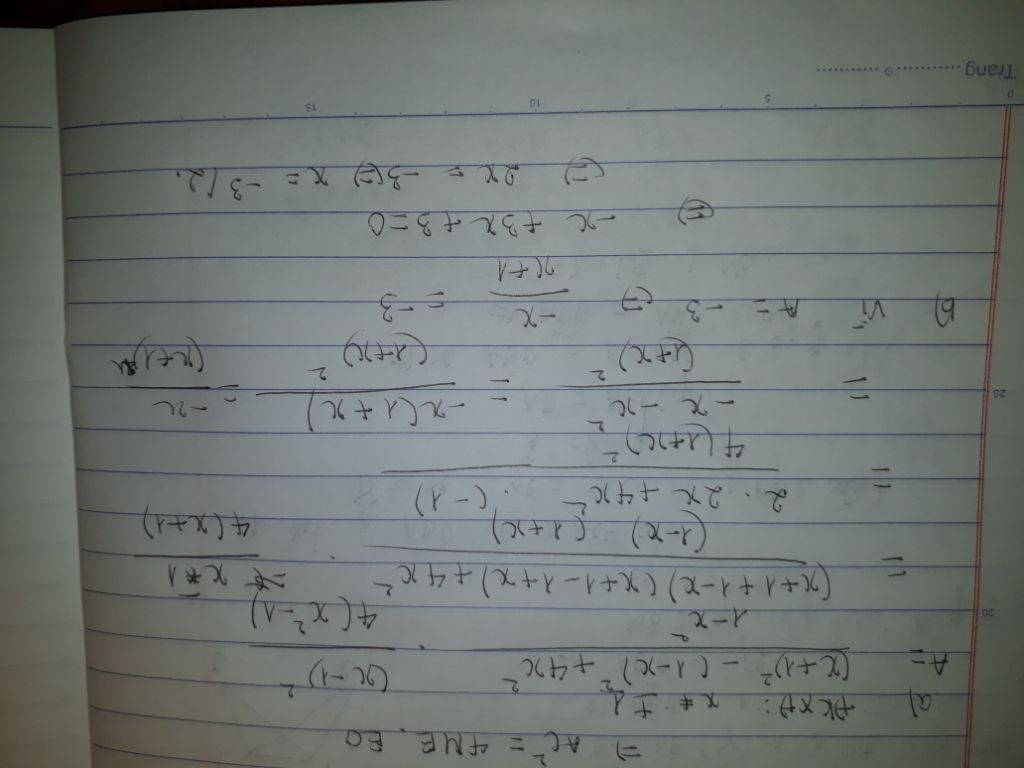 => AC² = 4ME. EO
a) ĐKXĐ: x ≠ ±1
A = ((x+1)² - (1-x)² + 4x²) / (1-x²) · (x-1)² / (4(x²-1))
= ((x+1+1-x)(x+1-1+x) + 4x²) / ((1-x)(1+x)) · (x-1) / (4(x+1))
= (2 . 2x + 4x² . (-1)) / (4(1+x)²)
= (-x - x²) / (1+x)² = (-x(1+x)) / (1+x)² = (-x) / (x+1)
b) Vì A = -3 (=) (-x) / (x+1) = -3
(=) -x + 3x + 3 = 0
(=) 2x = -3 (=) x = -3/2.
Trang
0 5 10 15
20
25